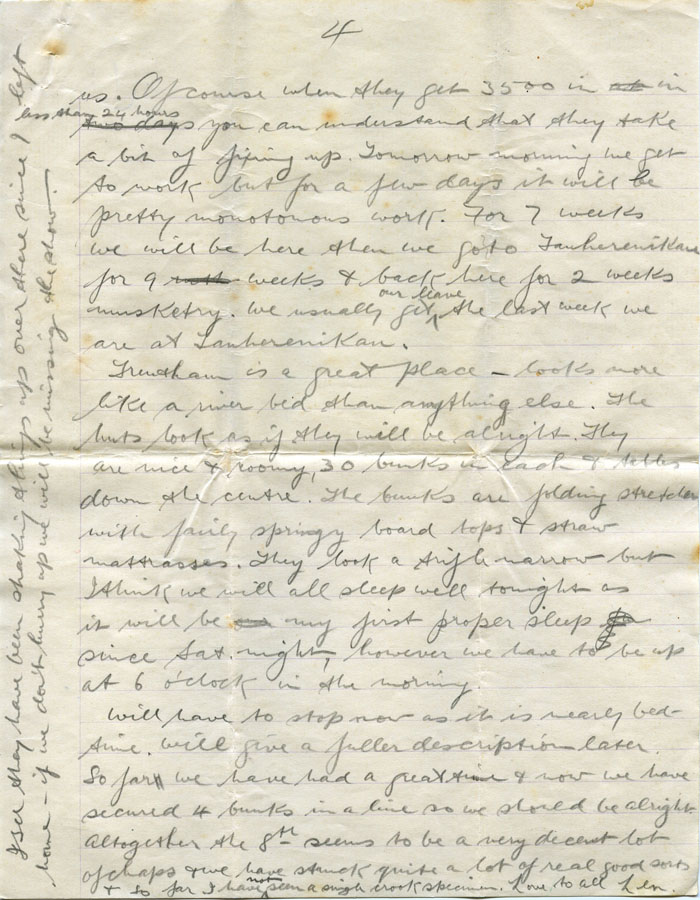 4
us. Of course when they get 3500 in in
less than 24 hours
two days you can understand that they take
a bit of fixing up. Tomorrow morning we get
to work but for a few days it will be
pretty monotonous work. For 7 weeks
we will be here then we go to Tauherenikau
for 9 weeks & back here for 2 weeks
our leave
musketry. We usually get ^ the last week we
are at Tauherenikau.
Trentham is a great place – looks more
like a river bed than anything else. The
huts look as if they will be alright. They
are nice & roomy, 30 bunks in each & tables
down the centre. The bunks are folding stretcher
with fairly springy board tops & straw
mattrasses. They look a trifle narrow but
I think we will all sleep well tonight as
it will be my first proper sleep
since Sat. night, however we have to be up
at 6 o'clock in the morning.
Will have to stop now as it is nearly bed-
time. Will give a fuller description later.
So far we have had a great time & now we have
secured 4 bunks in a line so we should be alright
Altogether the 8th seems to be a very decent lot
of chaps & we have struck quite a lot of real good sorts
& so far I have not seen a single crook specimen. Love to all Len.
I see they have been shaking things up over there since I left
home – if we don't hurry up we will be missing the show.